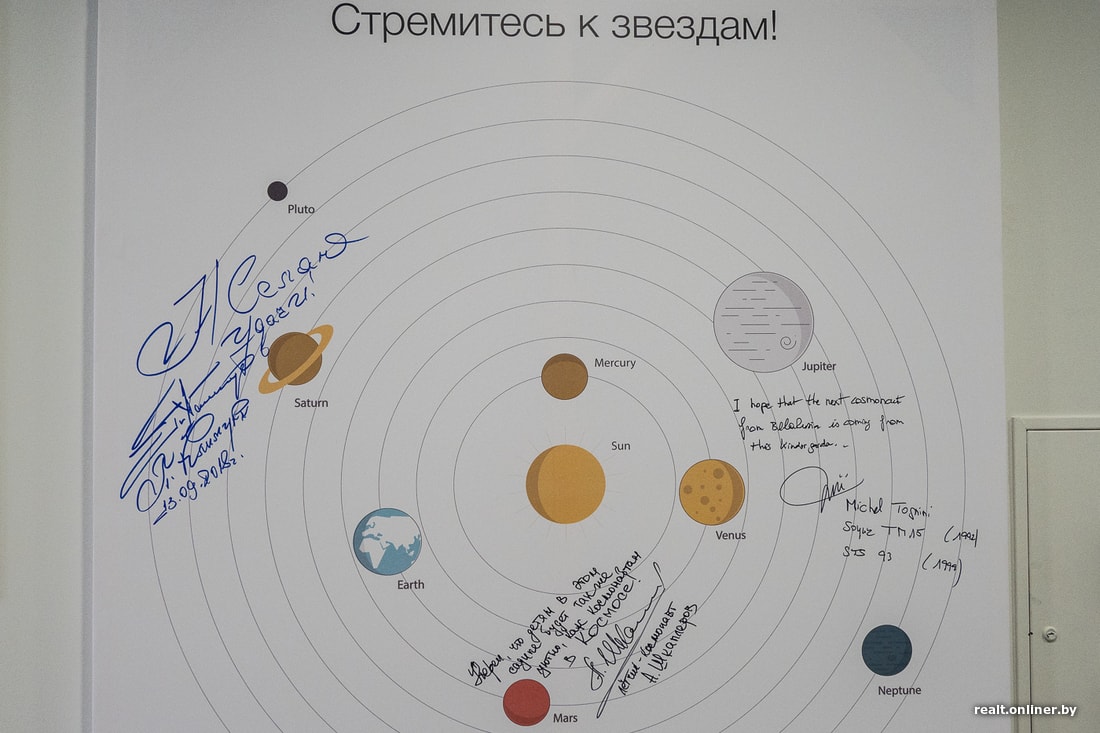 Стремитесь к звездам!
Pluto
Saturn
Mercury
Sun
Jupiter
Venus
Earth
Mars
Neptune
Удачи!
13.09.2018г.
I hope that the next cosmonaut
from is coming from
this
Michel Tognini
Soyuz TM15 (1992)
STS 93 (1999)
Уверен, что детям в этом
садике будет так же
уютно, как космонавтам
в космосе!
лётчик-космонавт
А. Шкаплеров
realt.onliner.by